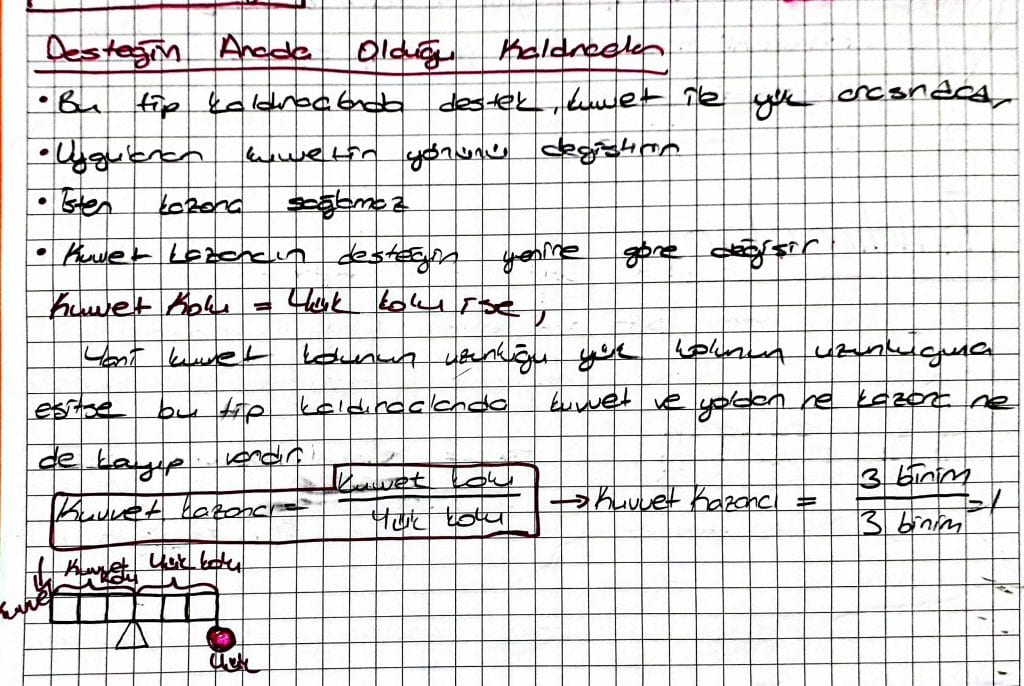 Desteğin Arada Olduğu Kaldıraçlar
• Bu tip kaldıraçlarda destek, kuvvet ile yük arasındadır
• Uygulanan kuvvetin yönünü değiştirir
• İşten kazanç sağlamaz
• Kuvvet kazancın desteğin yerine göre değişir.
Kuvvet Kolu = Yük kolu ise,
Yani kuvvet kolunun uzunluğu yük kolunun uzunluğuna
eşitse bu tip kaldıraçlarda kuvvet ve yoldan ne kazanç ne
de kayıp vardır.
Kuvvet kazancı = Kuvvet kolu / Yük kolu → Kuvvet Kazancı = 3 birim / 3 birim = 1
Kuvvet kolu Yük kolu
Kuvvet
Yük